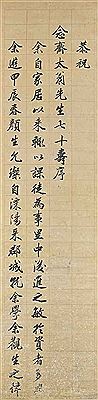 恭祝
念齋太翁先生七十壽序
余自家居以来輙以課徒為事里中後進之敏於質者多
余遊甲辰春顏生允璨自陽来郡城從余學余觀生之律